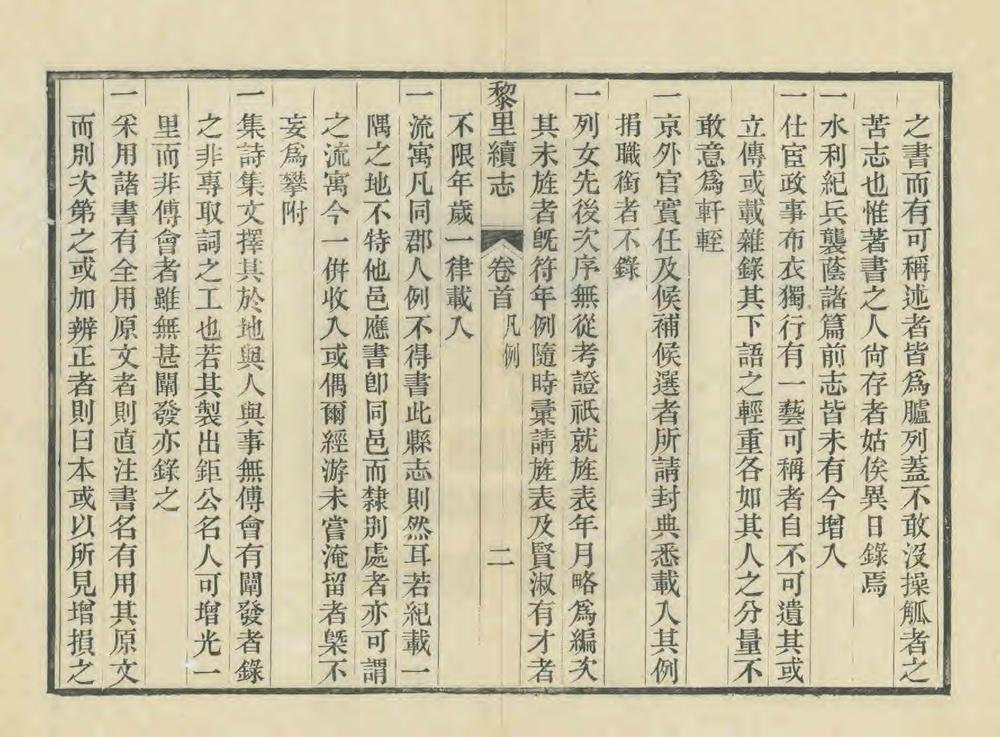 之書而有可稱述者皆爲臚列蓋不敢沒操觚者之
苦志也惟著書之人尙存者姑俟異日錄焉
一水利紀兵襲蔭諸篇前志皆未有今增入
一仕宦政事布衣獨行有一藝可稱者自不可遺其或
立傳或載雜錄其下語之輕重各如其人之分量不
敢意爲軒輊
一京外官實任及候補候選者所請封典悉載入其例
捐職銜者不錄
一列女先後次序無從考證祇就旌表年月略爲編次
其未旌者旣符年例隨時彙請旌表及賢淑有才者
黎里續志 卷首 凡例 二
不限年歲一律載入
一流寓凡同郡人例不得書此縣志則然耳若紀載一
隅之地不特他邑應書卽同邑而隸別處者亦可謂
之流寓今一併收入或偶爾經游未嘗淹留者槩不
妄爲攀附
一集詩集文擇其於地與人與事無傅會有闡發者錄
之非專取詞之工也若其製出鉅公名人可增光一
里而非傅會者雖無甚闡發亦錄之
一采用諸書有全用原文者則直注書名有用其原文
而別次第之或加辨正者則曰本或以所見增損之